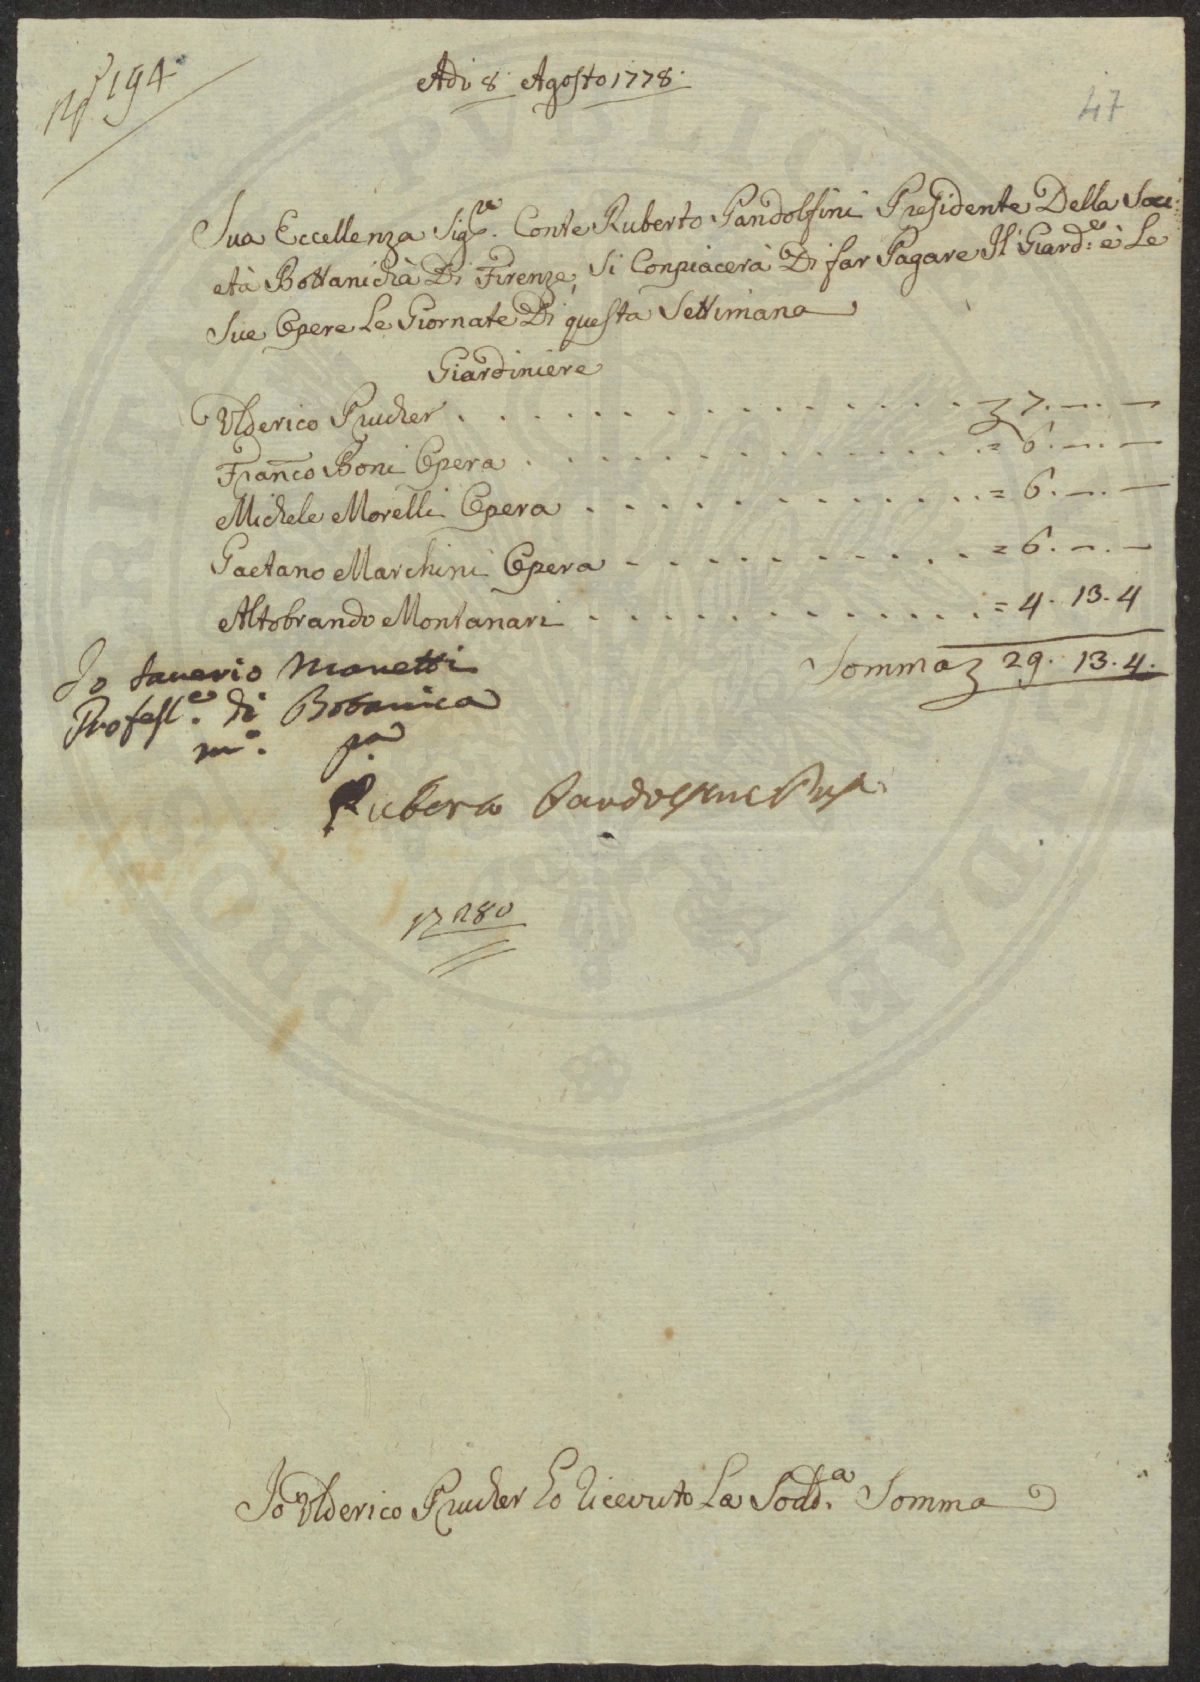 N.º 194
Adi 8. Agosto 1778.
47
Sua Eccellenza Sig.re Conte Ruberto Pandolfini Presidente Della Soci:
età Bottanicha Di Firenze, Si Conpiacerà Di far Pagare Il Giard.re è Le
Sue Opere Le Giornate Di questa Settimana
Giardiniere
Ulderico Prucher . . . . . . . . . . . . . . . . 7. —. —
Franco Boni Opera . . . . . . . . . . . . . . = 6. —. —
Michele Morelli Opera . . . . . . . . . . . . = 6. —. —
Gaetano Marchini Opera . . . . . . . . . . = 6. —. —
Altobrando Montanari . . . . . . . . . . . . = 4. 13. 4
Somma 29. 13. 4.
Io Saverio Manetti
Profess.e di Botanica
m.o p.a
Ruberto Pandolfini Pres.
280
Io Ulderico Prucher ho Ricevuto La Sodd.a Somma
PRIDAE PUBLIC